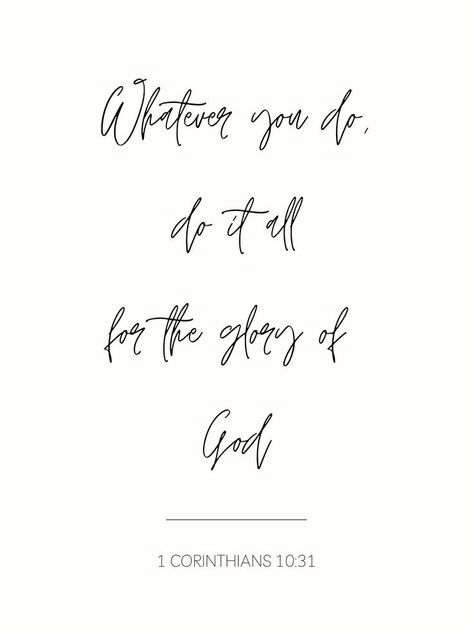 Whatever you do,
do it all
for the glory of
God
1 CORINTHIANS 10:31